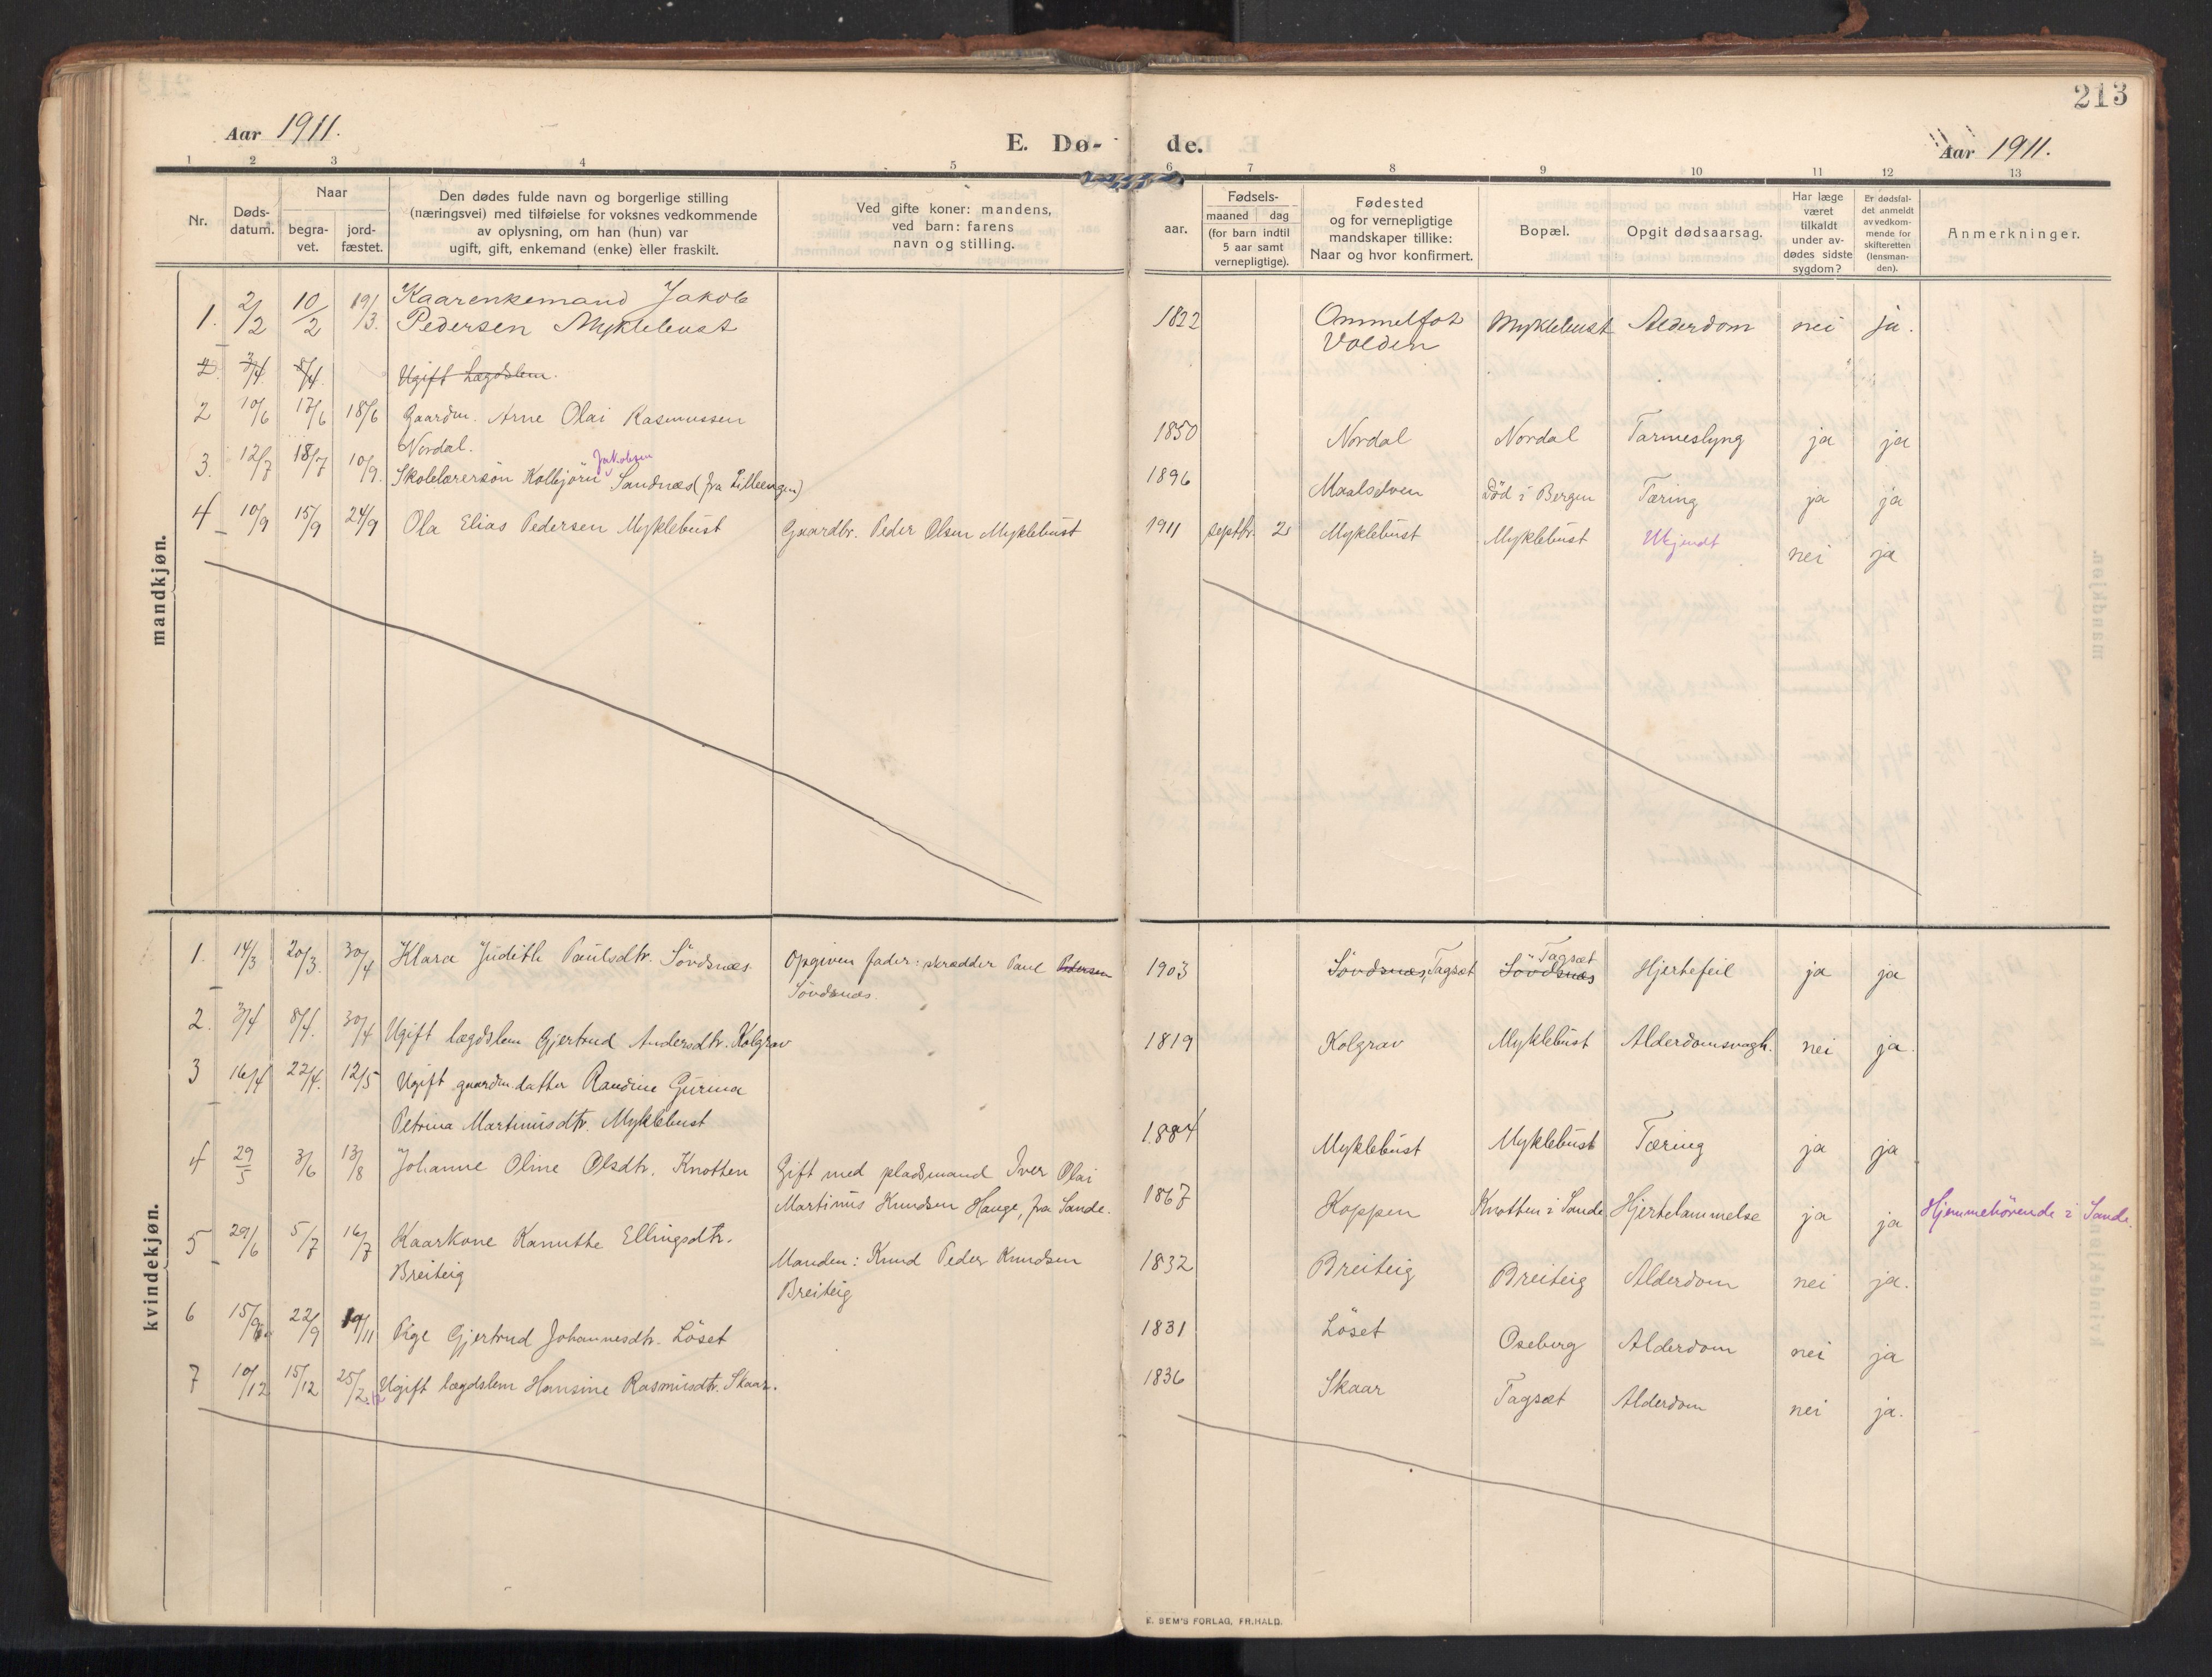 213
Aar 1911.
E. Dø- de.
Aar 1911.
1 2 3 4 5 6 7 8 9 10 11 12 13
Nr.
Døds-
datum.
Naar
begra-
vet.
jord-
fæstet.
Den dødes fulde navn og borgerlige stilling
(næringsvei) med tilføielse for voksnes vedkommende
av oplysning, om han (hun) var
ugift, gift, enkemand (enke) eller fraskilt.
Ved gifte koner: mandens,
ved barn: farens
navn og stilling.
aar.
Fødsels-
maaned dag
(for barn indtil
5 aar samt
vernepligtige).
Fødested
og for vernepligtige
mandskaper tillike:
Naar og hvor konfirmert.
Bopæl.
Opgit dødsaarsag.
Har læge
været
tilkaldt
under av-
dødes sidste
sygdom?
Er dødsfal-
det anmeldt
av vedkom-
mende for
skifteretten
(lensman-
den).
Anmerkninger.
mandkjøn.
1. 2/2 10/2 19/3. Kaarenkemand Jakob
Pedersen Myklebust 1822 Ommelfot
Volden Myklebust Alderdom nei ja.
2. 3/4. 8/4. Ugift Lægdslem.
2 10/6 17/6 18/6 Gaardm. Arne Olai Rasmussen
Nordal. 1850 Nordal Nordal Tarmeslyng ja ja
3. 12/7 18/7 10/9. Skolelærersøn Kolbjörn Jakobsen Sandnæs (fra Lilleengen) 1896 Maalselven Död i Bergen Tæring ja ja
4 10/9 15/9 24/9 Ola Elias Pedersen Myklebust Gaardbr. Peder Olsen Myklebust 1911 septbr. 2 Myklebust Myklebust Ukjendt nei ja
kvindekjøn.
1. 14/3 20/3. 30/4 Klara Judith Paulsdtr. Sövdsnæs Opgiven fader: skrædder Paul Pedersen
Sövdsnæs. 1903 Sövdsnæs, Tagsæt Sövdsnæs Tagsæt Hjertefeil ja ja
2. 3/4 8/4. 30/4 Ugift lægdslem Gjertrud Andersdtr. Kolgrav 1819 Kolgrav Myklebust Alderdomsvagh. nei ja.
3 16/4 22/4. 12/5 Ugift gaardm.datter Randine Gurina
Petrina Martinusdtr. Myklebust 1884 Myklebust Myklebust Tæring ja ja
4 29/5 3/6 13/8 Johanne Oline Olsdtr. Knotten Gift med pladsmand Iver Olai
Martinus Knudsen Hauge, fra Sande. 1867 Koppen Knotten i Sande Hjertelammelse ja ja Hjemmehörende i Sande.
5 29/6 5/7 16/7 Kaarkone Kanutte Ellingsdtr.
Breiteig Manden: Knud Peder Knudsen
Breiteig 1832 Breiteig Breiteig Alderdom nei ja.
6 15/9 22/9 19/11 Pige Gjertrud Johannesdtr. Löset 1831 Löset Oseberg Alderdom nei ja
7 10/12 15/12 25/2.12 Ugift lægdslem Hansine Rasmusdtr. Skaar. 1836 Skaar Tagsæt Alderdom nei ja.
E. SEM'S FORLAG, FR.HALD.